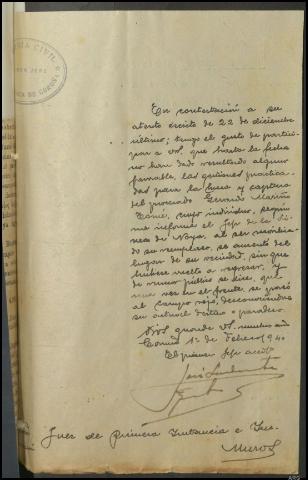 GUARDIA CIVIL
CORUÑA
En contestación a su
atento escrito de 22 de diciembre
último; tengo el gusto de partici-
par a Vd. que hasta la fecha
no han dado resultado alguno
favorable, las gestiones practica-
das para la busca y captura
del procesado Gerardo Mariño
Tomé, cuyo individuo, según
me informa el Jefe de la Lí-
nea de Noya, al ser moviliza-
do su reemplazo, se ausentó del
lugar de su vecindad, sin que
hubiese vuelto a regresar, y
de rumor público se dice, que
una vez en el frente, se pasó
al campo rojo, desconociéndose
su actual destino o paradero.
Dios guarde Vd. muchos años
Coruña 1º de Febrero 1940
El primer Jefe acctl.
Juez de Primera Instancia e Ins-
Muros